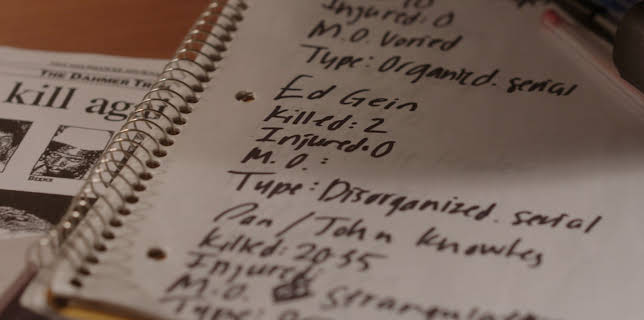 THE DAHMER
kill aga
10
Injured: 0
M.O. Varied
Type: Organizd. serial
Ed Gein
Killed: 2
Injured. 0
M.O.:
Type: Disorganized. serial
Pan / John Knowles
Killed: 20-35
Injured:
M.O. Strangulat
Type: